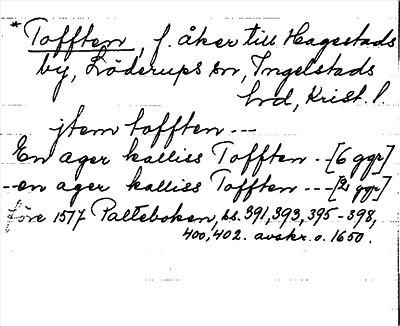 * Tofften, f. åker till Hagestads
by, Löderups sn, Ingelstads
hrd, Krist. l.
jtem tofften ---
En ager kalliss Tofften -- [6 ggr]
-- en ager kalliss Tofften --- [2 ggr]
före 1517 Palteboken, ss. 391, 393, 395-398,
400, 402. avskr. o. 1650.